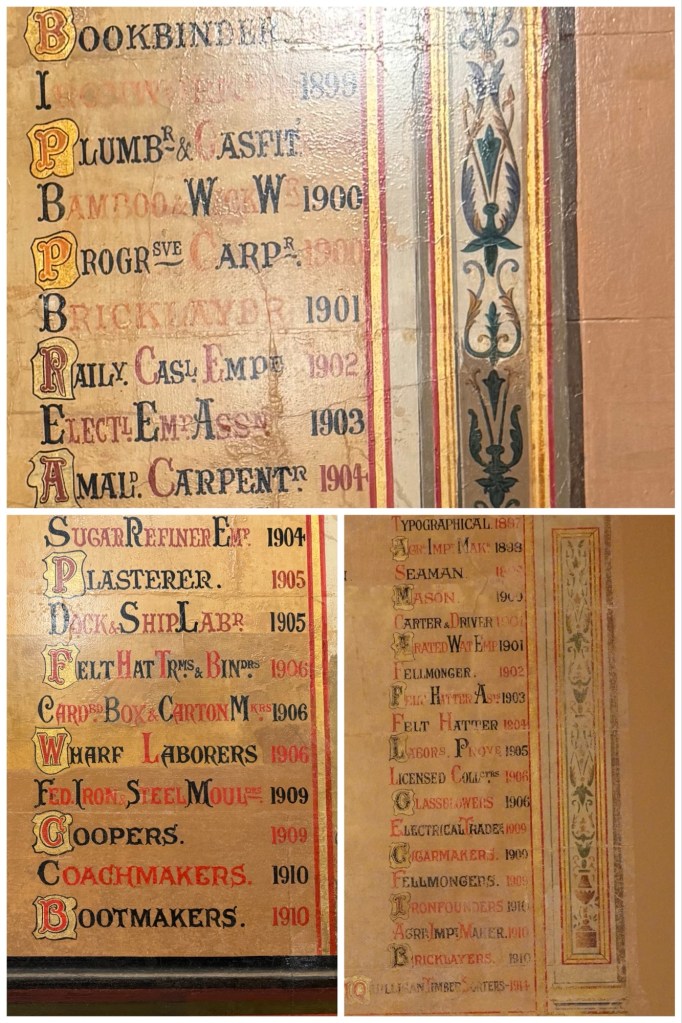 BOOKBINDER
I 1899
PLUMBR & GASFITR
BAMBOO & WICK W 1900
PROGRSVE CARPR. 1900
BRICKLAYER 1901
RAILY. CASL EMPE 1902
ELECTL EMP ASSN 1903
AMALD. CARPENTR 1904
SUGAR REFINER EMP. 1904
PLASTERER. 1905
DOCK & SHIP LABR 1905
FELT HAT TRMS & BINDRS 1906
CARDBD BOX & CARTON MKRS 1906
WHARF LABORERS 1906
FED. IRON & STEEL MOULDRE 1909
COOPERS. 1909
COACHMAKERS. 1910
BOOTMAKERS. 1910
TYPOGRAPHICAL 1897
AGRL IMPT MAKR 1898
SEAMAN
MASON.
CARTER & DRIVER
ÆRATED WAT EMP 1901
FELLMONGER. 1902
FELT HATTER AST 1903
FELT HATTER 1904
LABORS. PROVE 1905
LICENSED COLLCTRS 1906
GLASSBLOWERS 1906
ELECTRICAL TRADES 1909
CIGARMAKERS. 1909
FELLMONGERS. 1909
IRONFOUNDERS 1910
AGRL IMPT MAKER. 1910
BRICKLAYERS. 1910
TIMBER SORTERS-1914